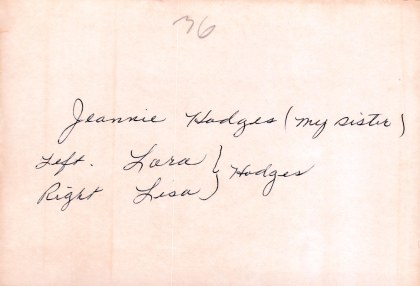 36
Jeannie Hodges (my sister)
Left. Lara } Hodges
Right Lisa